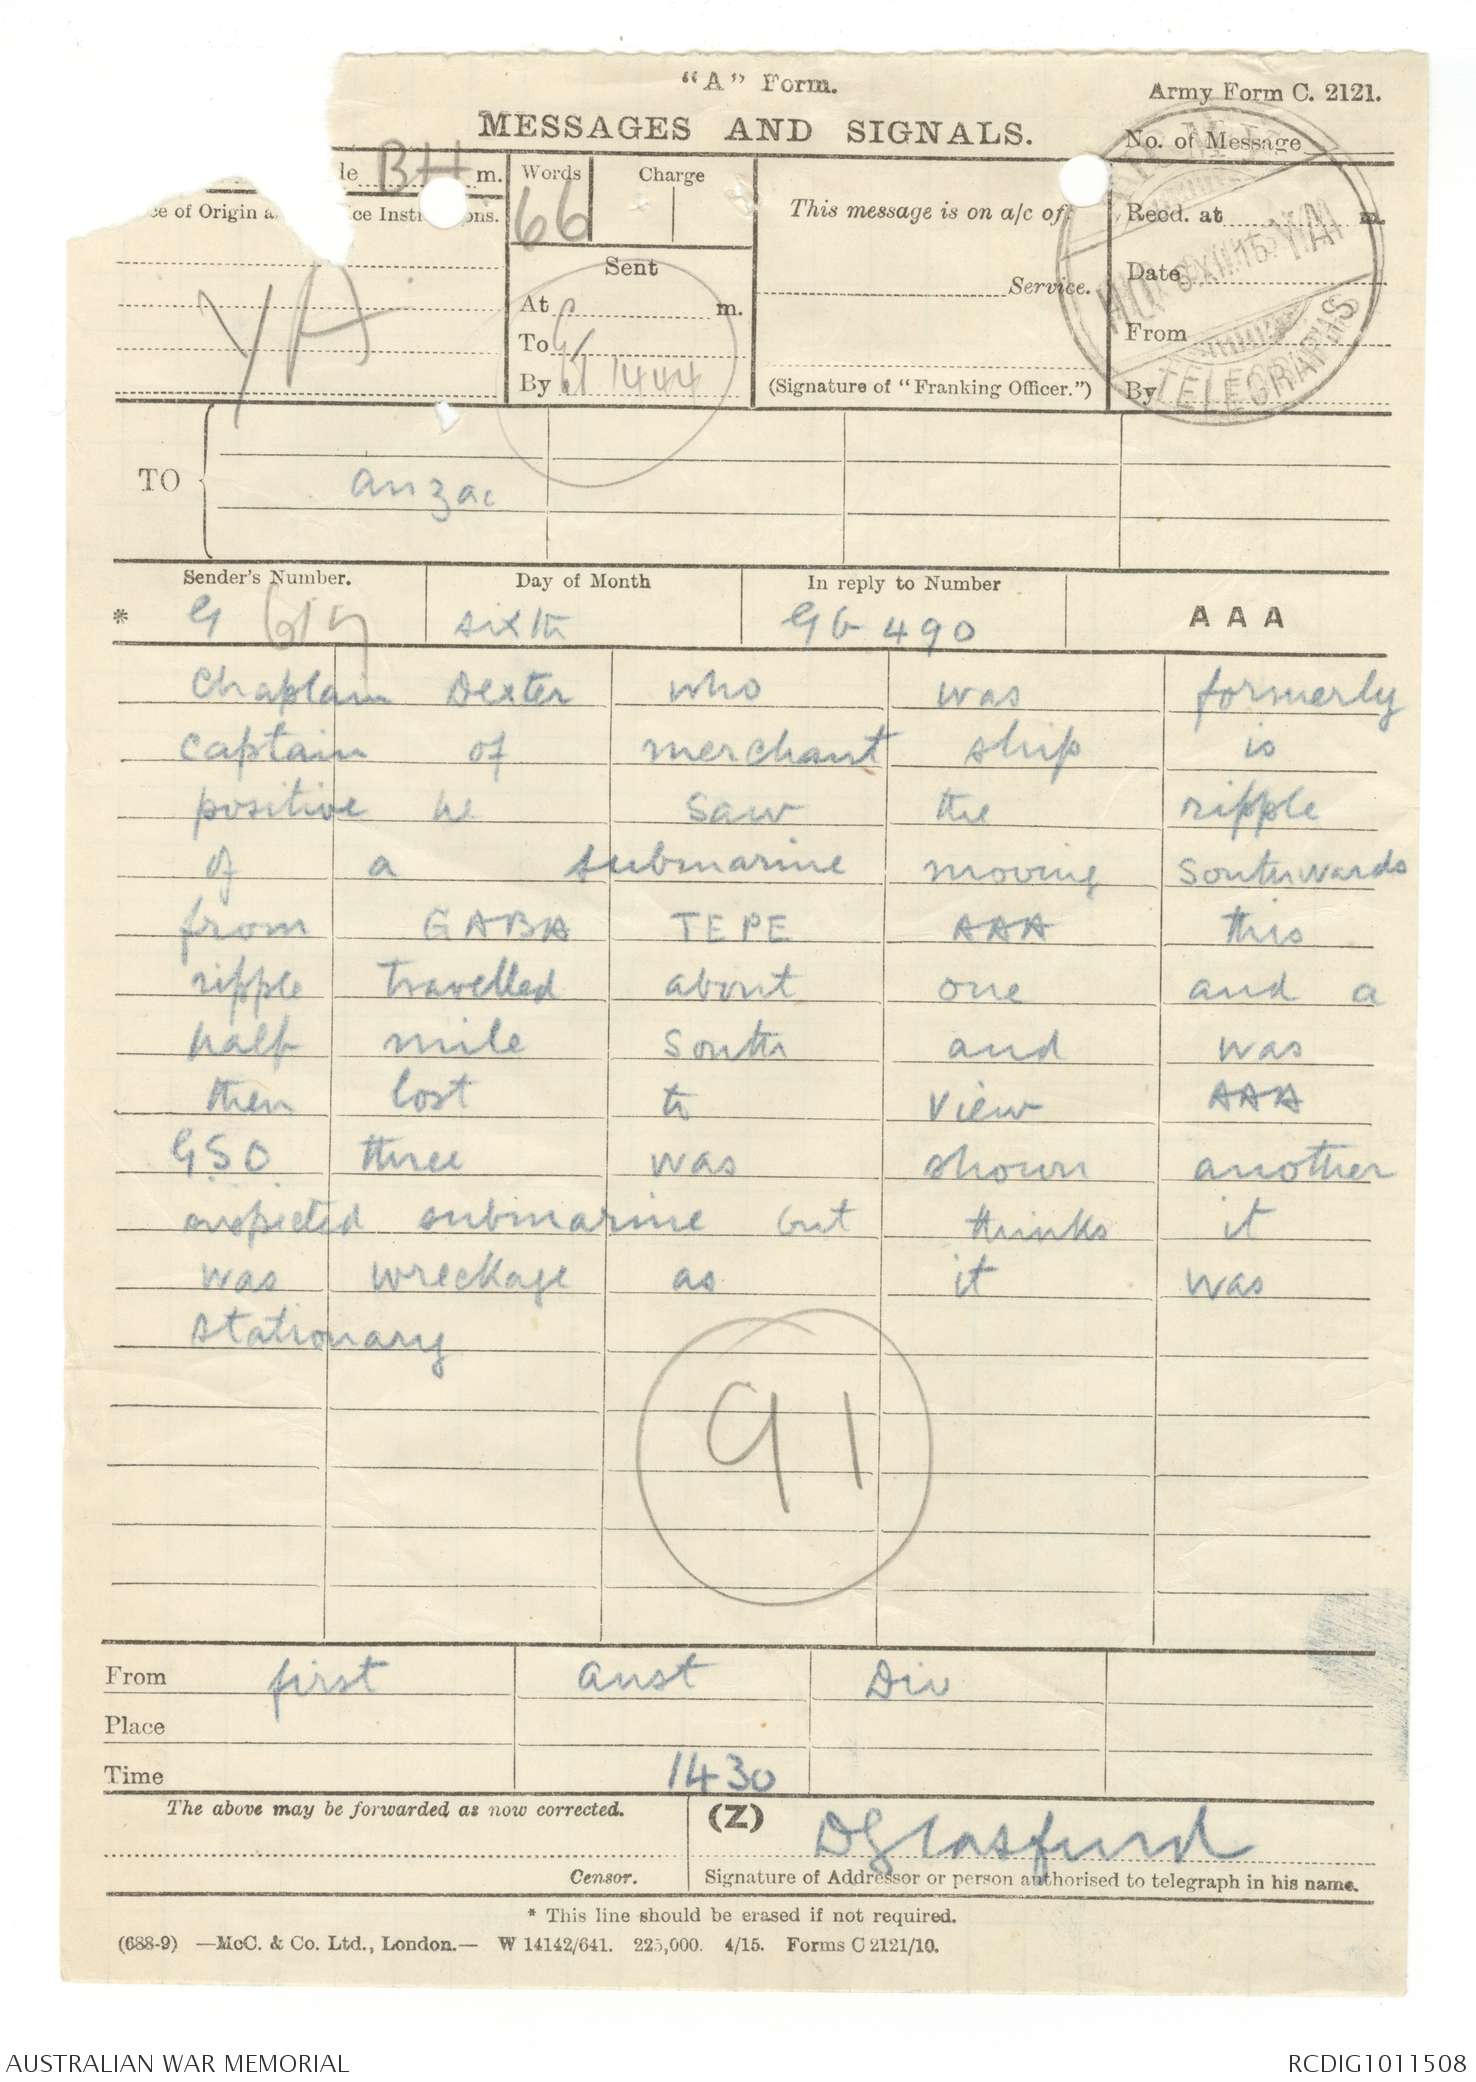 "A" Form.
Army Form C. 2121.
MESSAGES AND SIGNALS.
No. of Message
de BH m.
Words
66
Charge
This message is on a/c of:
Service.
(Signature of "Franking Officer.")
Recd. at m.
Date
From
By
ce of Origin a ce Instr ons.
YA
Sent
At m.
To
By 1444
TELEGRAPHS
TO
anzac
Sender's Number.
Day of Month
In reply to Number
* G 617
sixth
GG 490
AAA
Chaplain Dexter who was formerly
captain of merchant ship is
positive he saw the ripple
of a submarine moving southwards
from GABA TEPE AAA this
ripple travelled about one and a
half mile South and was
then lost to view AAA
G.S.O. three was shown another
suspected submarine but thinks it
was wreckage as it was
stationary
91
From first aust Div
Place
Time 1430
The above may be forwarded as now corrected.
(Z) DGlasfurd
Censor.
Signature of Addressor or person authorised to telegraph in his name.
* This line should be erased if not required.
(688-9) —McC. & Co. Ltd., London.— W 14142/641. 225,000. 4/15. Forms C 2121/10.
AUSTRALIAN WAR MEMORIAL
RCDIG1011508